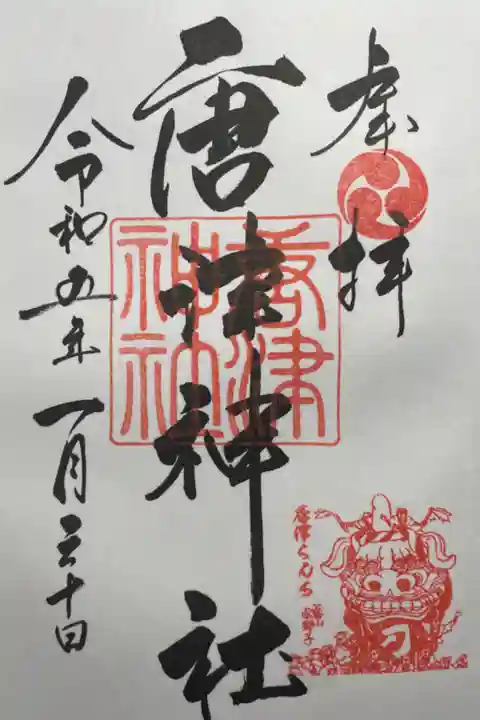 奉拝
唐津神社
唐津神社
令和五年一月三十日
唐津くんち